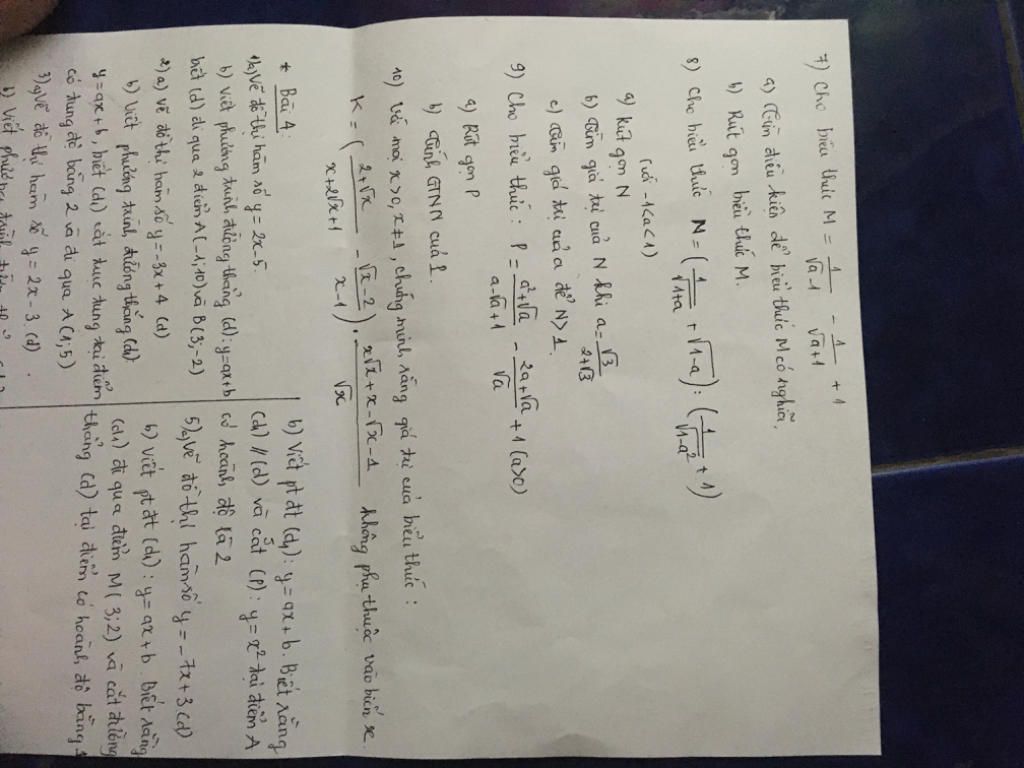 7) Cho biểu thức M = 1/(√a-1) - 1/(√a+1) + 1
a) Tìm điều kiện để biểu thức M có nghĩa.
b) Rút gọn biểu thức M.
8) Cho biểu thức N = (1/√(1+a) + √(1-a)) : (1/√(1-a²) + 1)
(với -1<a<1)
a) Rút gọn N
b) Tìm giá trị của N khi a = √3/(2+√3)
c) Tìm giá trị của a để N > 1.
9) Cho biểu thức : P = (a²+√a)/(a-√a+1) - (2a+√a)/√a + 1 (a>0)
a) Rút gọn P
b) Tính GTNN của P.
10) Với mọi x>0, x≠1, chứng minh rằng giá trị của biểu thức :
K = ((2+√x)/(x+2√x+1) - (√x-2)/(x-1)) . (x√x+x-√x-1)/√x không phụ thuộc vào biến x.
* Bài 4:
1)a) Vẽ đồ thị hàm số y = 2x-5.
b) Viết phương trình đường thẳng (d): y=ax+b
biết (d) đi qua 2 điểm A(-1;10) và B(3;-2)
2) a) Vẽ đồ thị hàm số y = -3x+4 (d)
b) Viết phương trình đường thẳng (d₁)
y = ax+b, biết (d₁) cắt trục tung tại điểm
có tung độ bằng 2 và đi qua A(1;5)
3) a) Vẽ đồ thị hàm số y = 2x-3 (d).
b) Viết phương trình
b) Viết pt đt (d₁): y = ax+b. Biết rằng
(d₁) // (d) và cắt (P): y = x² tại điểm A
có hoành độ là 2
5) a) Vẽ đồ thị hàm số y = -7x+3 (d)
b) Viết pt đt (d₁): y = ax+b. Biết rằng
(d₁) đi qua điểm M(3;2) và cắt đường
thẳng (d) tại điểm có hoành độ bằng 1